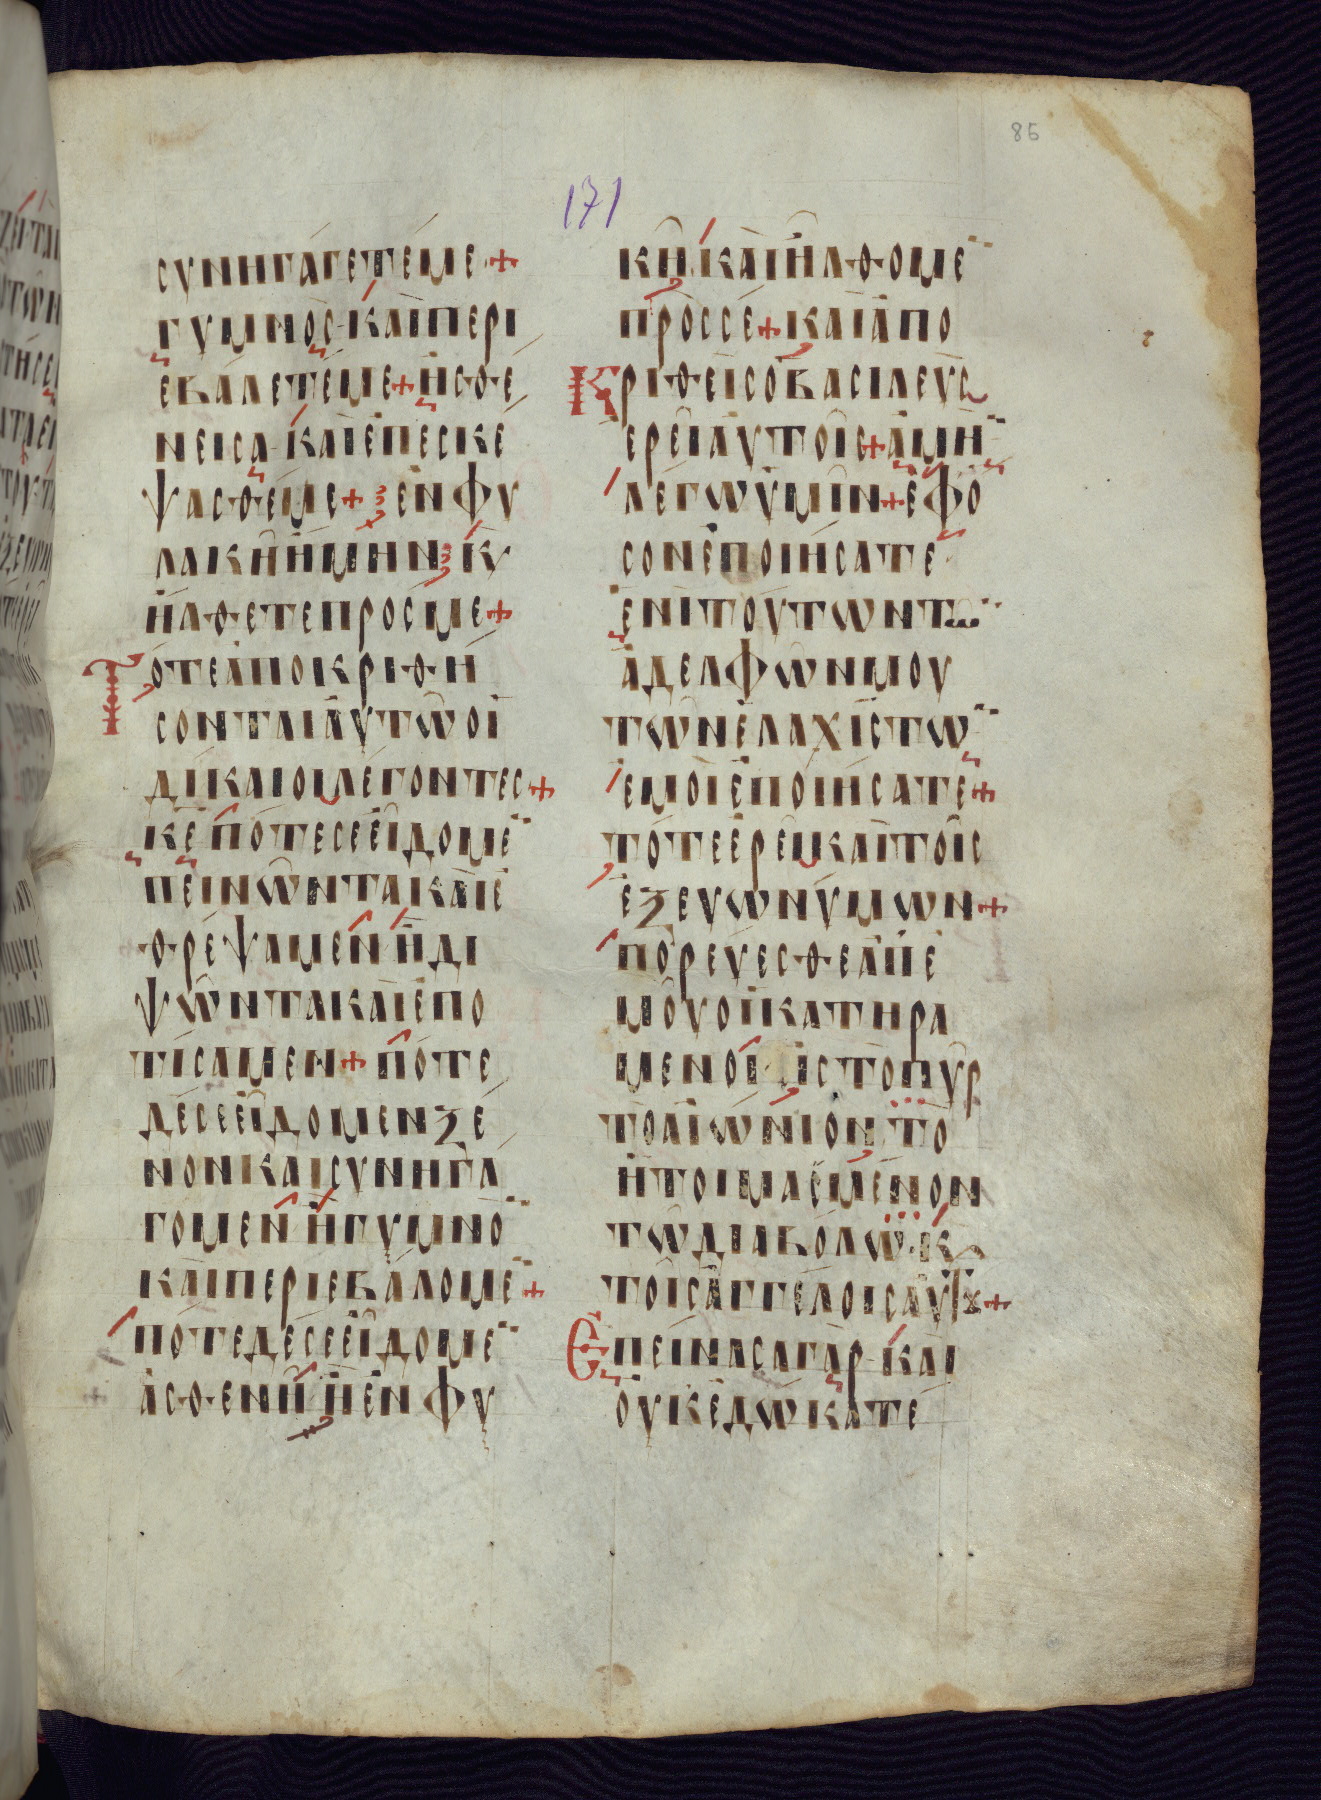 85
171
συνηγάγετέ με +
γυμνὸς καὶ περι
εβάλετέ με + ἠσθέ
νεισα καὶ ἐπεσκέ
ψασθέ με + ἐν φυ
λακῇ ἤμην κ(αὶ)
ἤλθετε πρός με +
Τότε ἀποκριθή
σονται αὐτῶ οἱ
δίκαιοι λέγοντες +
κε πότε σὲ εἴδομε¨
πεινῶντα καὶ ἐ
θρέψαμεν ἢ δι
ψῶντα καὶ ἐπο
τίσαμεν + πότε
δέ σε εἴδομεν ξέ
νον καὶ συνηγά
γομεν ἢ γυμνὸ¨
καὶ περιεβάλομε¨ +
πότε δέ σε εἴδομε¨
ἀσθενῆ ἢ ἐν φυ
κῆ καὶ ἤλθομε¨
πρός σέ + καὶ ἀπο
Κριθεὶς ὁ βασιλεὺς
ἐρεῖ αὐτοῖς + ἀμὴ¨
λέγω ὑμῖν + ἐφ ὅ
σον ἐποιήσατε
ἑνὶ τούτων τ...¨
ἀδελφῶν μου
τῶν ἐλαχίστω¨
ἐμοὶ ἐποιήσατε +
τότε ἐρεῖ καὶ τοῖς
ἐξ εὐωνύμων +
πορεύεσθε ἀπ ἐ
μοῦ οἱ κατηρα
μένοι εἰς τὸ πῦρ
τὸ αἰώνιον τὸ
ἡτοιμασμένον
τῶ διαβόλω κ(αὶ)
τοῖς ἀγγέλοις αὐτȣ +
Ἐπείνασα γὰρ καὶ
οὐκ ἐδώκατέ